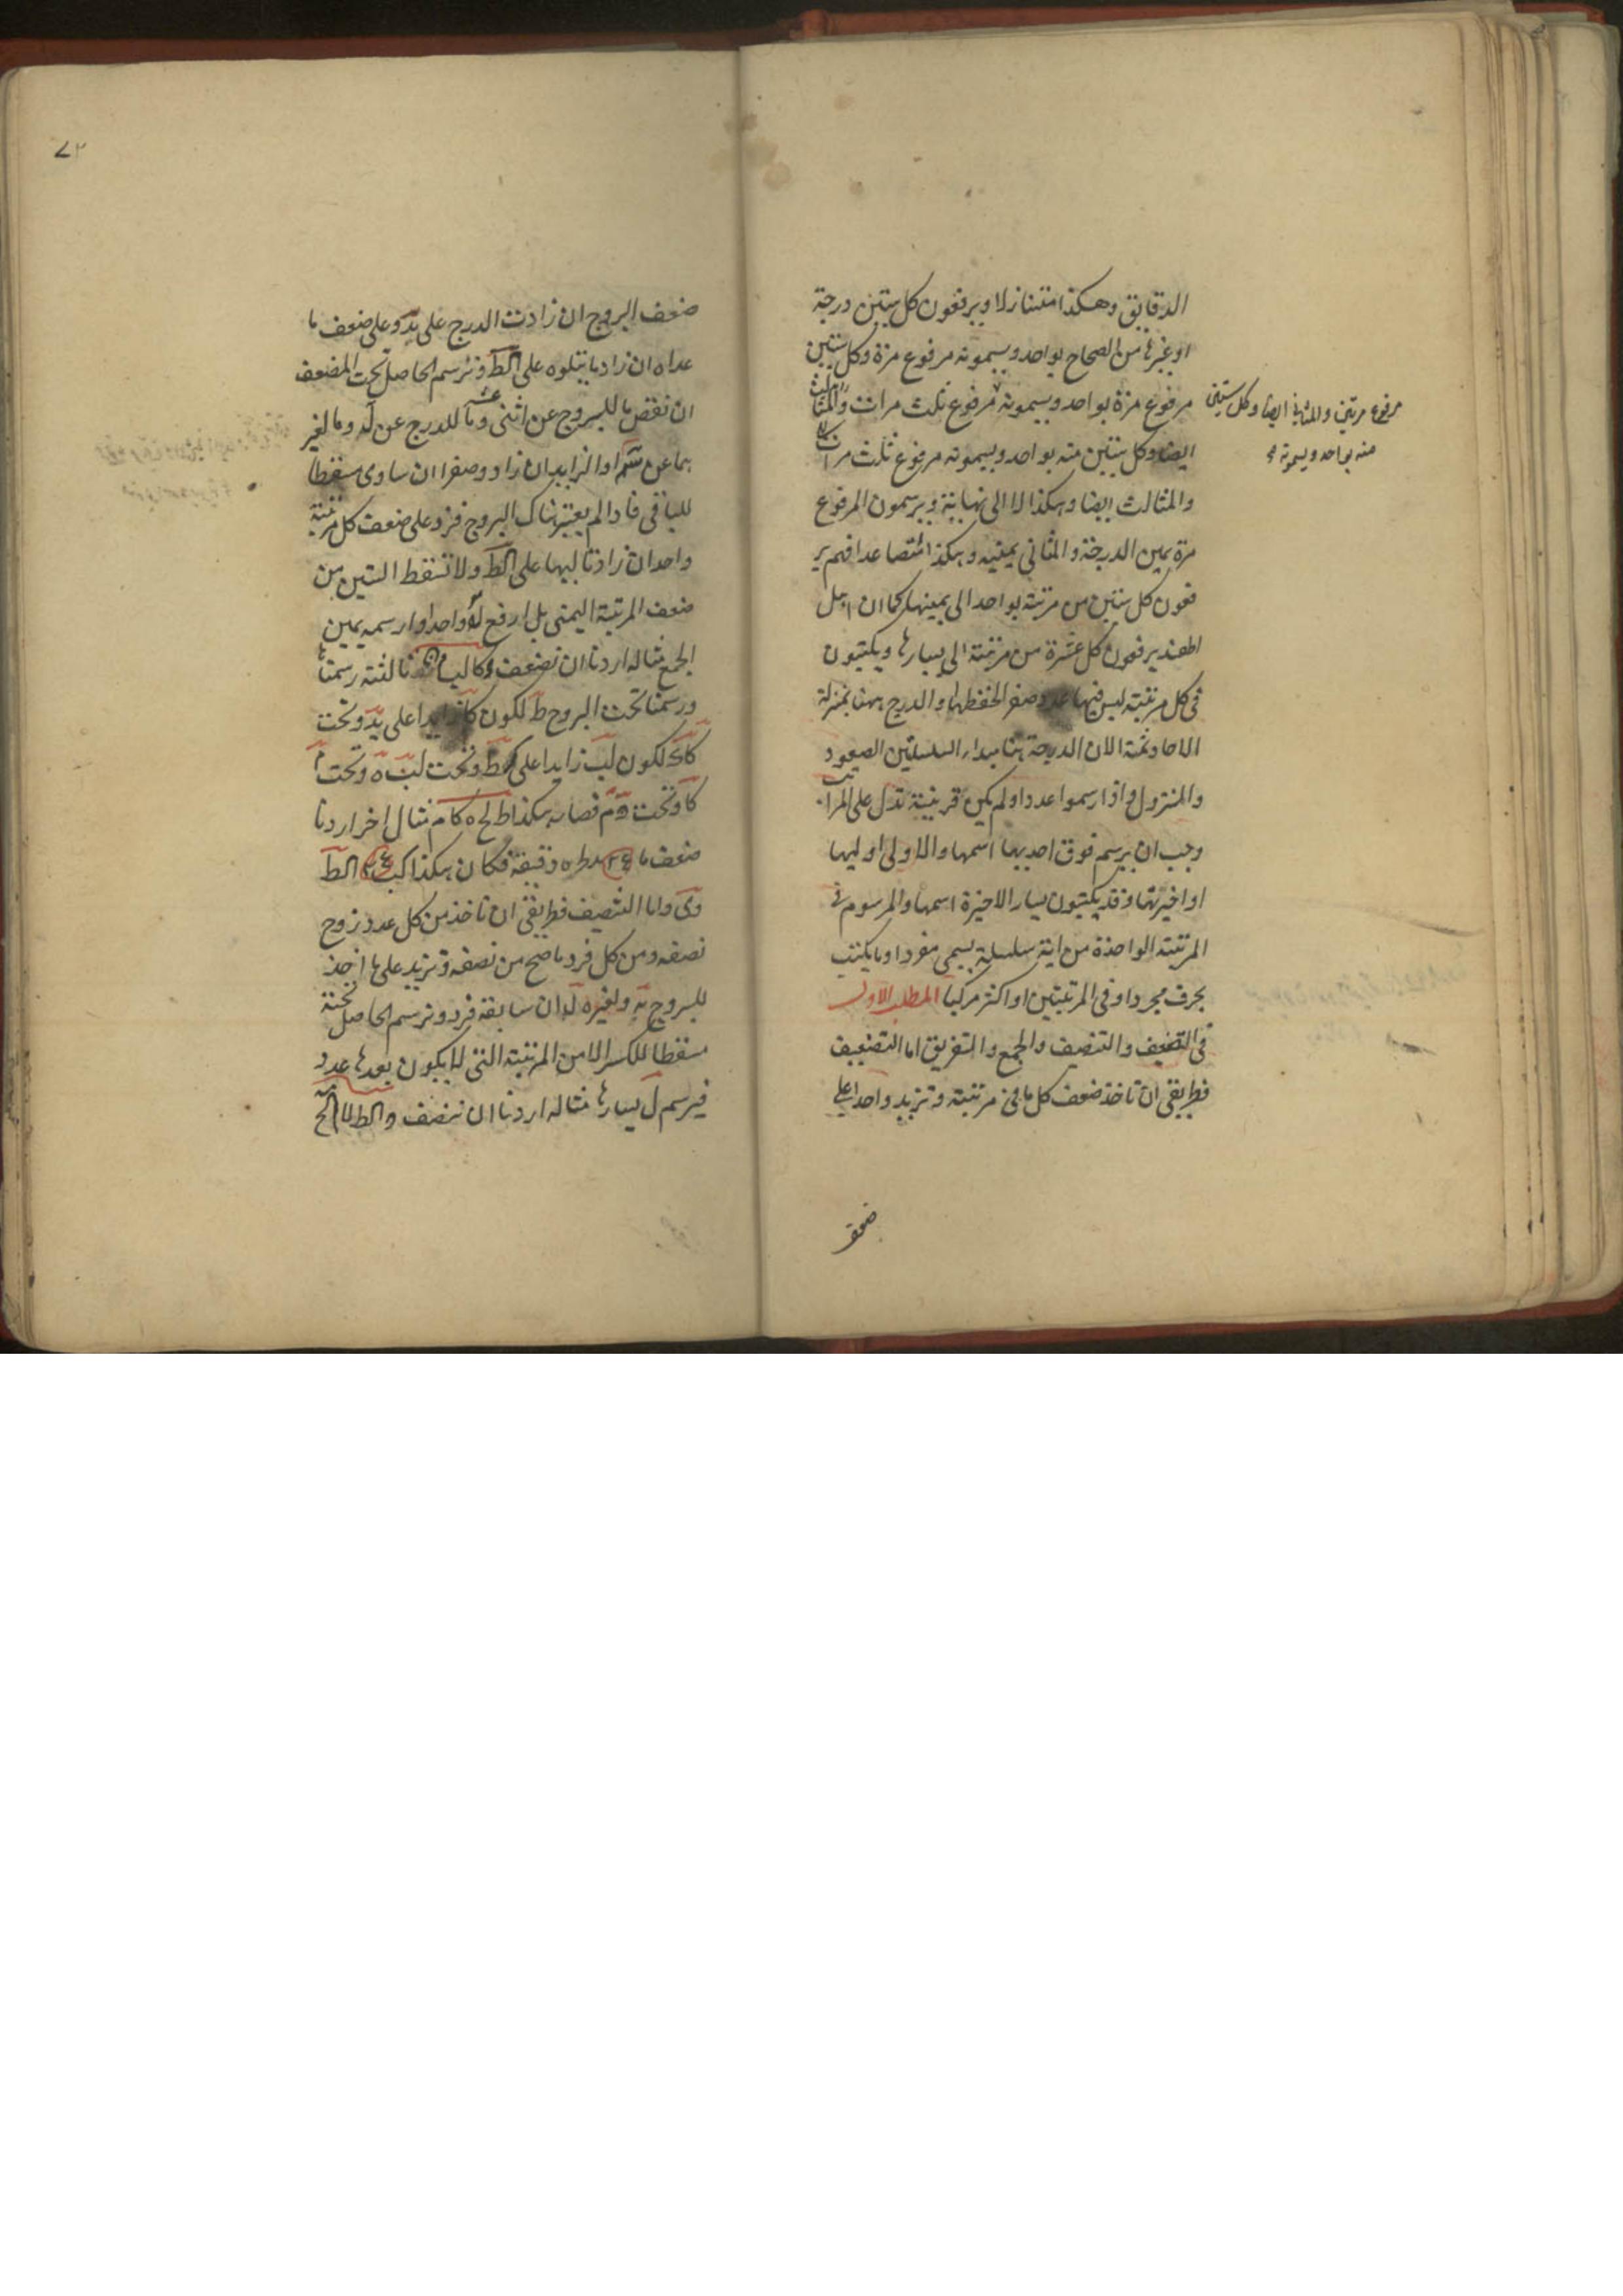 الدقايق وهكذا متنازلا ويرفعون كل ستين درجة
او غيرها من الصحاح بواحد ويسمونه مرفوع مرة وكل ستين
مرفوع مرة بواحد ويسمونه مرفوع ثلث مرات والمثالث
ايضا وكل ستين منه بواحد ويسمونه مرفوع ثلث مرات
والمثالث ايضا وهكذا لا الى نهاية ويرسمون المرفوع
مرة يمين الدرجة والمثاني يمينه وهكذا متصاعدا فهم ير
فعون كل ستين من مرتبة بواحد الى يمينها كما ان اهل
الهند يرفعون كل عشرة من مرتبة الى يسارها ويكتبون
في كل مرتبة ليس فيها عدد صفرا لحفظها والدرج ههنا بمنزلة
الاحاد ثمة الا ان الدرجة هنا مبداء السلسلتين الصعود
والنزول واذا رسموا عددا ولم يكن قرينة تدل على المراتب
وجب ان يرسم فوق احديها اسمها والاولى اوليها
او اخيرتها وقد يكتبون يسار الاخيرة اسمها والمرسوم في
المرتبة الواحدة من اية سلسلة يسمى مفردا وما يكتب
بحرف مجردا وفي المرتبتين او اكثر مركبا المطلب الاول
في التضعيف والتنصيف والجمع والتفريق اما التضعيف
فطريقه ان تاخذ ضعف كل ما في مرتبة وتزيد واحدا على
ضعف
مرفوع مرتين والمثاني ايضا وكل ستين
منه بواحد ويسمونه
٧٢
ضعف البروج ان زادت الدرج على يد وعلى ضعف ما
عداه ان زاد ما يتلوه على الط وترسم الحاصل تحت المضعف
ان نقص ما للبروج عن اثنى عشر وما للدرج عن له وما لغير
هما عن س او الزايد ان زاد وصفرا ان ساوى مسقطا
للباقى فاذا لم يعتبر هناك البروج فزد على ضعف كل مرتبة
واحدا ان زاد تاليها على الط ولا تسقط الستين من
ضعف المرتبة اليمنى بل ارفع له واحدا وارسمه يمين
الجمع مثاله اردنا ان نضعف ثالثة رسمناها
ورسمنا تحت البروج ط لكون كا زايدا على يد وتحت
لكون لب زايدا على الط وتحت لب ه وتحت م
كا وتحت م فصار هكذا ط لح ه كا م مثال اخر اردنا
ضعف دقيقة فكان هكذا
واما التنصيف فطريقه ان تاخذ من كل عدد زوج
نصفه ومن كل فرد ما صح من نصفه وتزيد على ما اخذ
للبروج يه ولغيره ل ان سابقه فرد وترسم الحاصل تحته
مسقطا للكسر الا من المرتبة التي لا يكون بعدها عدد
فيرسم ل يسارها مثاله اردنا ان ننصف